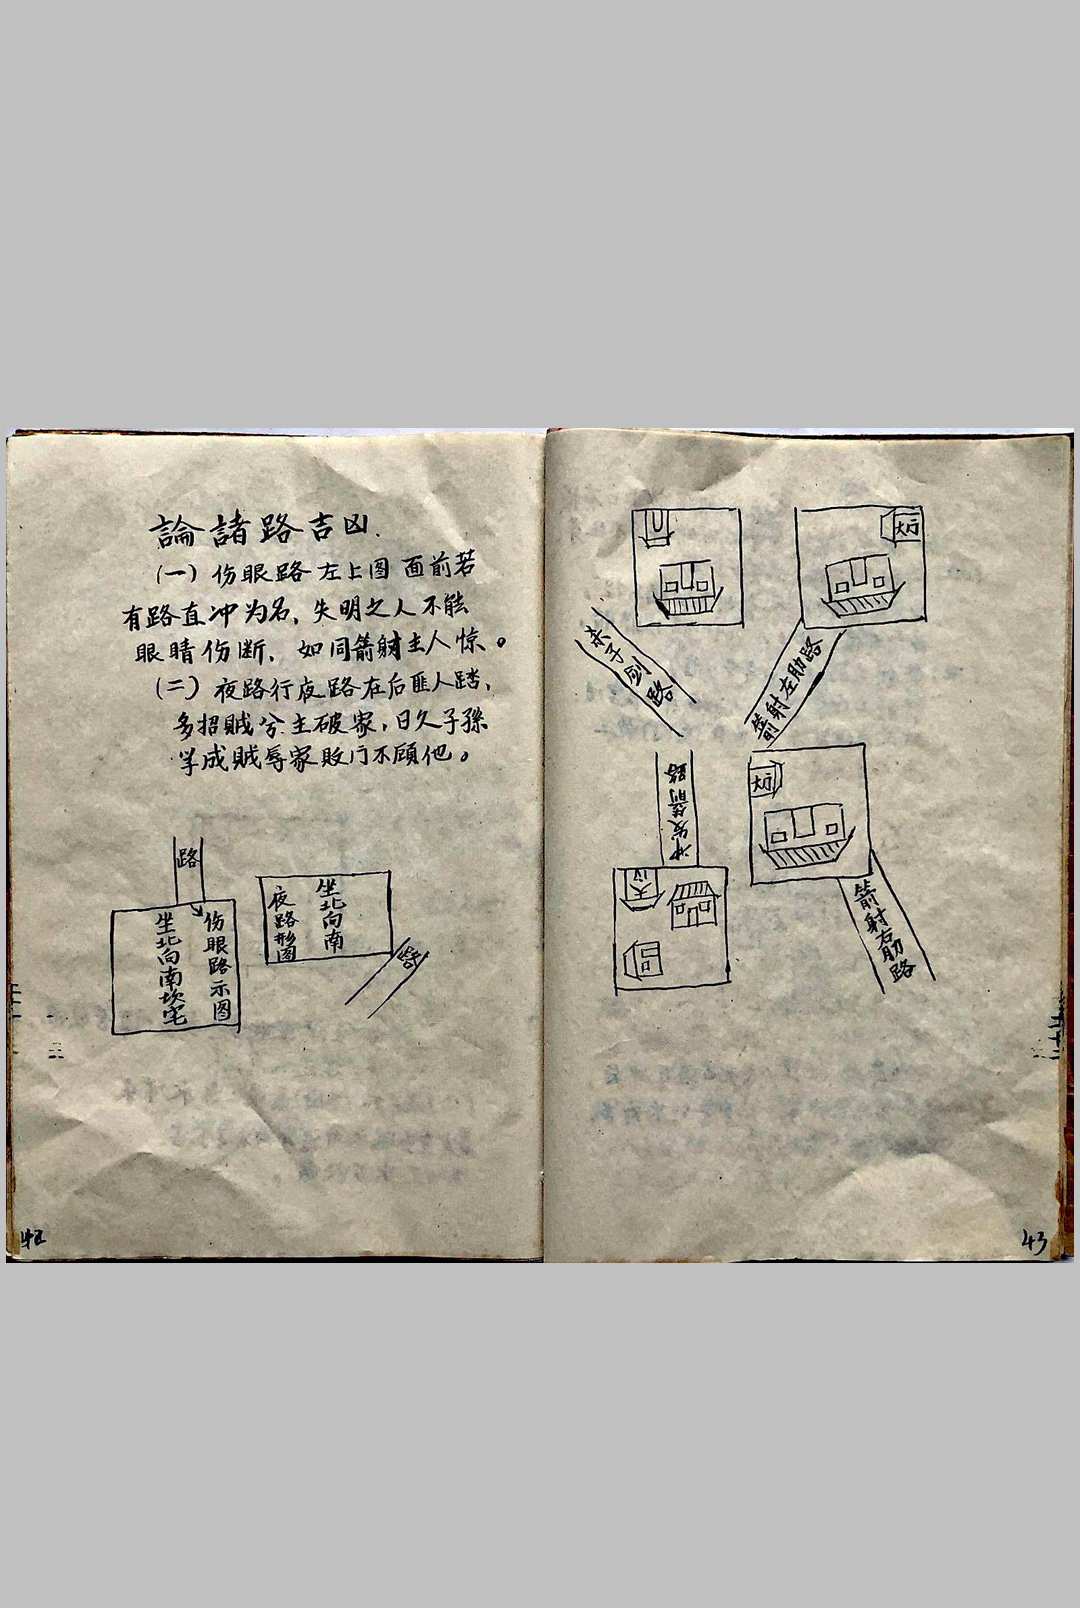 論諸路吉凶.
(一)伤眼路左上图面前若
有路直冲为名,失明之人不能
眼睛伤断,如同箭射主人惊。
(二)夜路行夜路在后匪人踏,
多招贼兮主破家,日久子孫
学成贼辱家败门不顾他。
路
伤眼路示图
坐北向南坎宅
坐北向南
夜路形图
路
42
大厅
子剑路
箭射左肋路
大厅
箭路
箭射右肋路
43